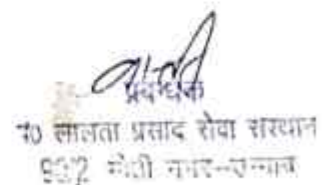 प्रबन्धक
पं0 लालता प्रसाद सेवा संस्थान
मोती नगर--उन्नाव